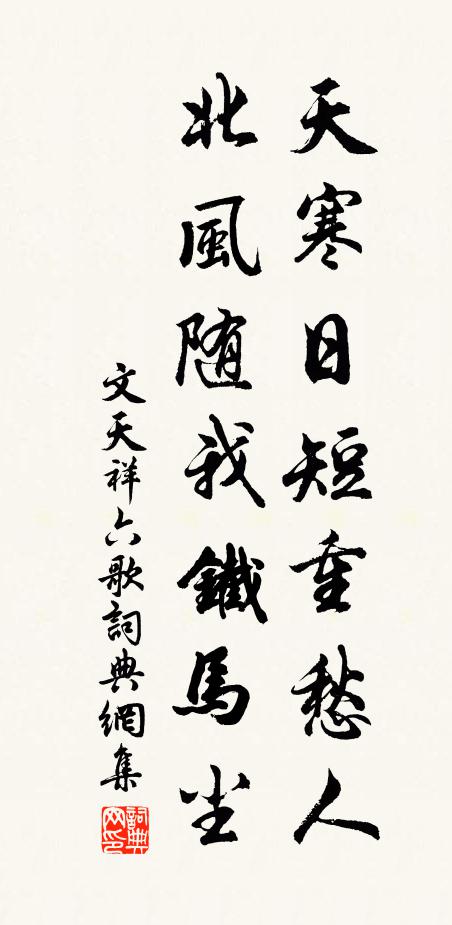 天寒日短重愁人
北風随我鐵馬尘
文天祥六歌詞典網集
詞典网印